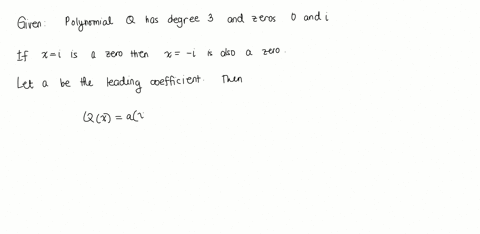 Given: Polynomial Q has degree 3 and zeros 0 and i
If x=i is a zero then x= -i is also a zero.
Let a be the leading coefficient. Then
Q(x) = a(